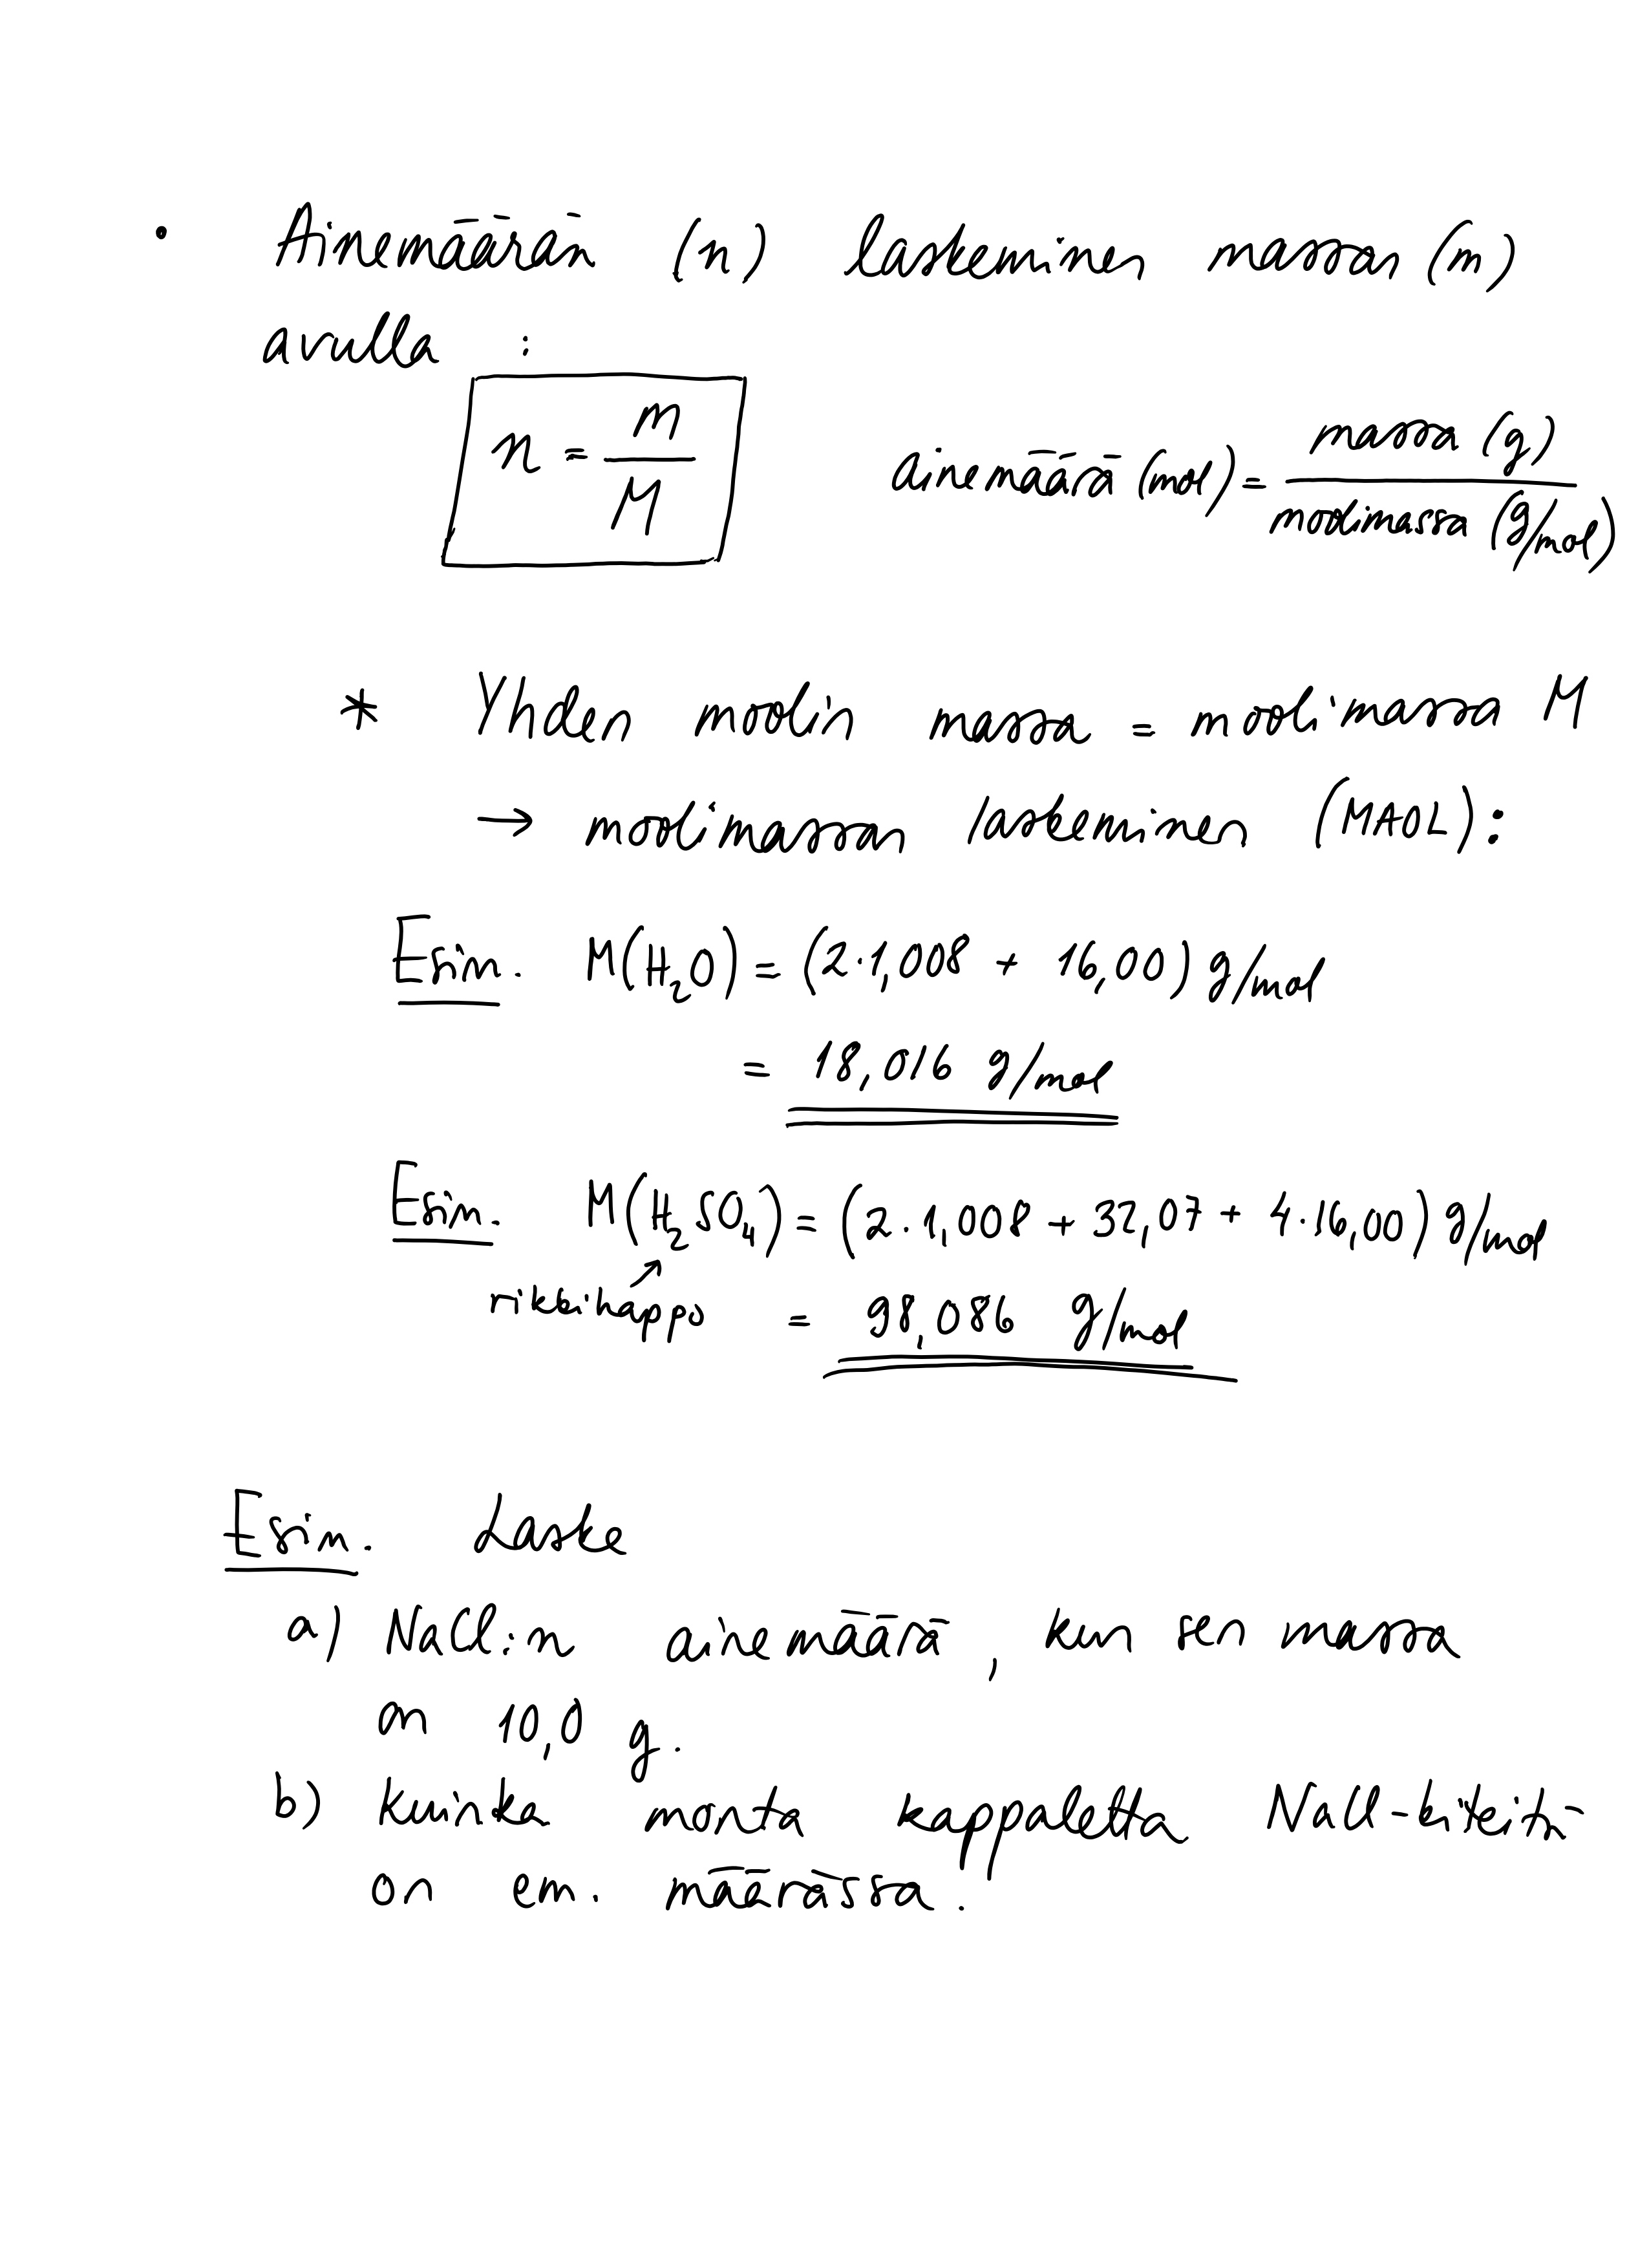 • Ainemäärän (n) laskeminen massan (m)
avulla :
n = m/M
ainemäärä (mol) = massa (g) / moolimassa (g/mol)
* Yhden moolin massa = moolimassa M
→ moolimassan laskeminen (MAOL):
Esim. M(H₂O) = (2·1,008 + 16,00) g/mol
= 18,016 g/mol
Esim. M(H₂SO₄) = (2·1,008 + 32,07 + 4·16,00) g/mol
rikkihappo ↗ = 98,086 g/mol
Esim. Laske
a) NaCl:n ainemäärä, kun sen massa
on 10,0 g.
b) Kuinka monta kappaletta NaCl-
on em. määrässä.